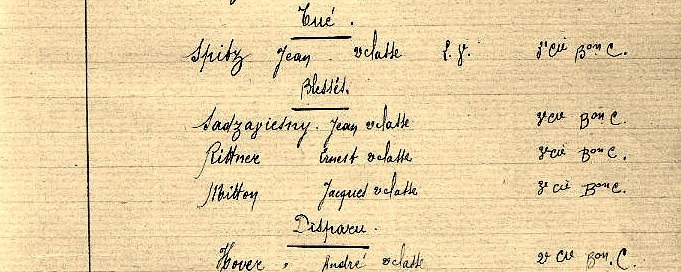 Tué.
Spitz Jean 2e classe L.V. 3e Cie Bon C.
Blessés.
Sadzaviesny. Jean 2e classe Cie Bon C.
Rittner Ernest 2e classe 3e Cie Bon C.
Mitton Jacques 2e classe 3e Cie Bon C.
Disparu.
Hover " André 2e classe Cie Bon. C.